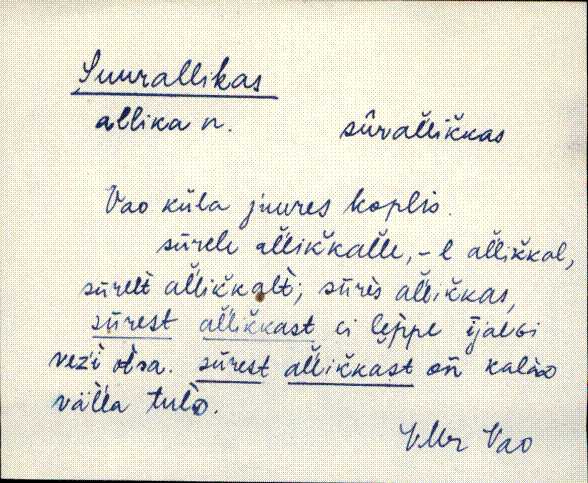 Suurallikas
allika n. sūrałlik̆kas
Vao küla juures koplis.
sūrele ałlik̆kalle, -l ałlik̆kal,
sūrelt ałlik̆kalt; sūrès ałlik̆kas,
sūrest ałlik̆kast ei
vezi otsa. sūrest ałlik̆kast on kalàD
vällä tulD.
VMr Vao